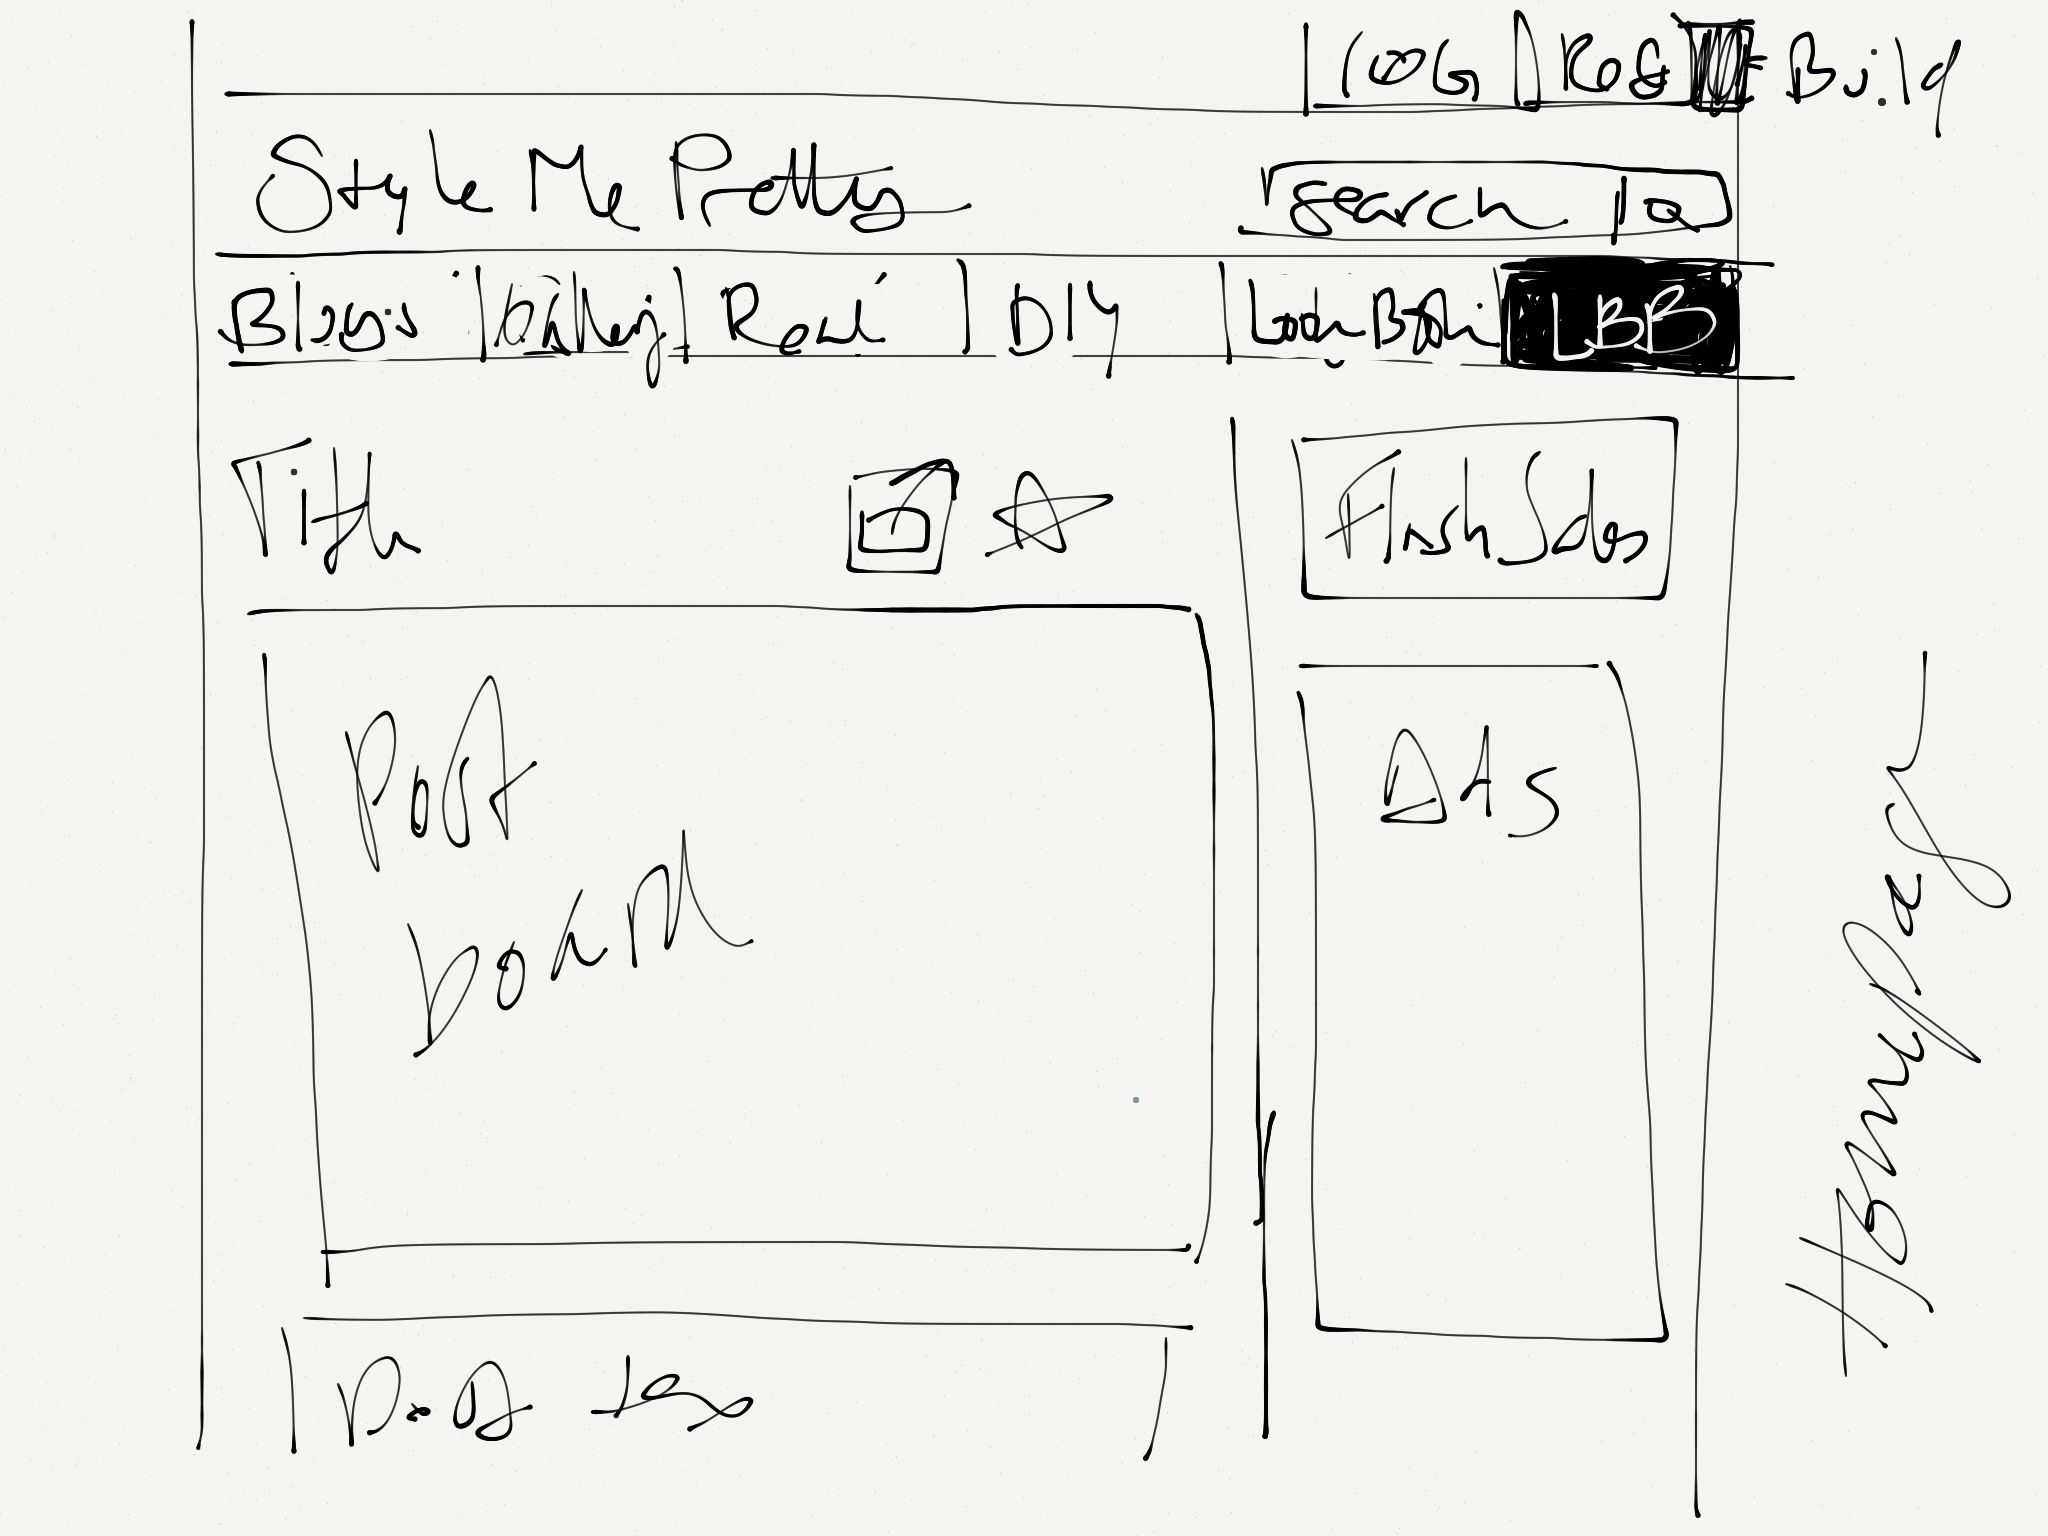 LOG | REG = Build
Style Me Pretty
Search
Blogs | Gallery | Real | DIY | Look Book | LBB
Title
Flash Sales
Post
board
Ads
Post
Homepage